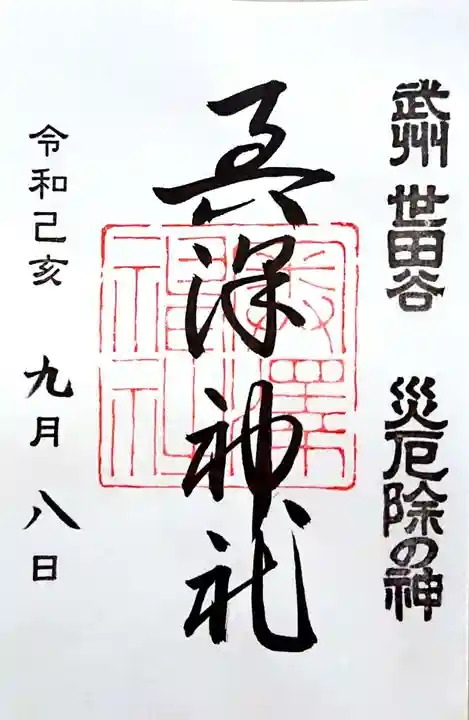 武州 世田谷 災厄除の神
奥澤神社
奥澤
神社
令和己亥 九月 八日